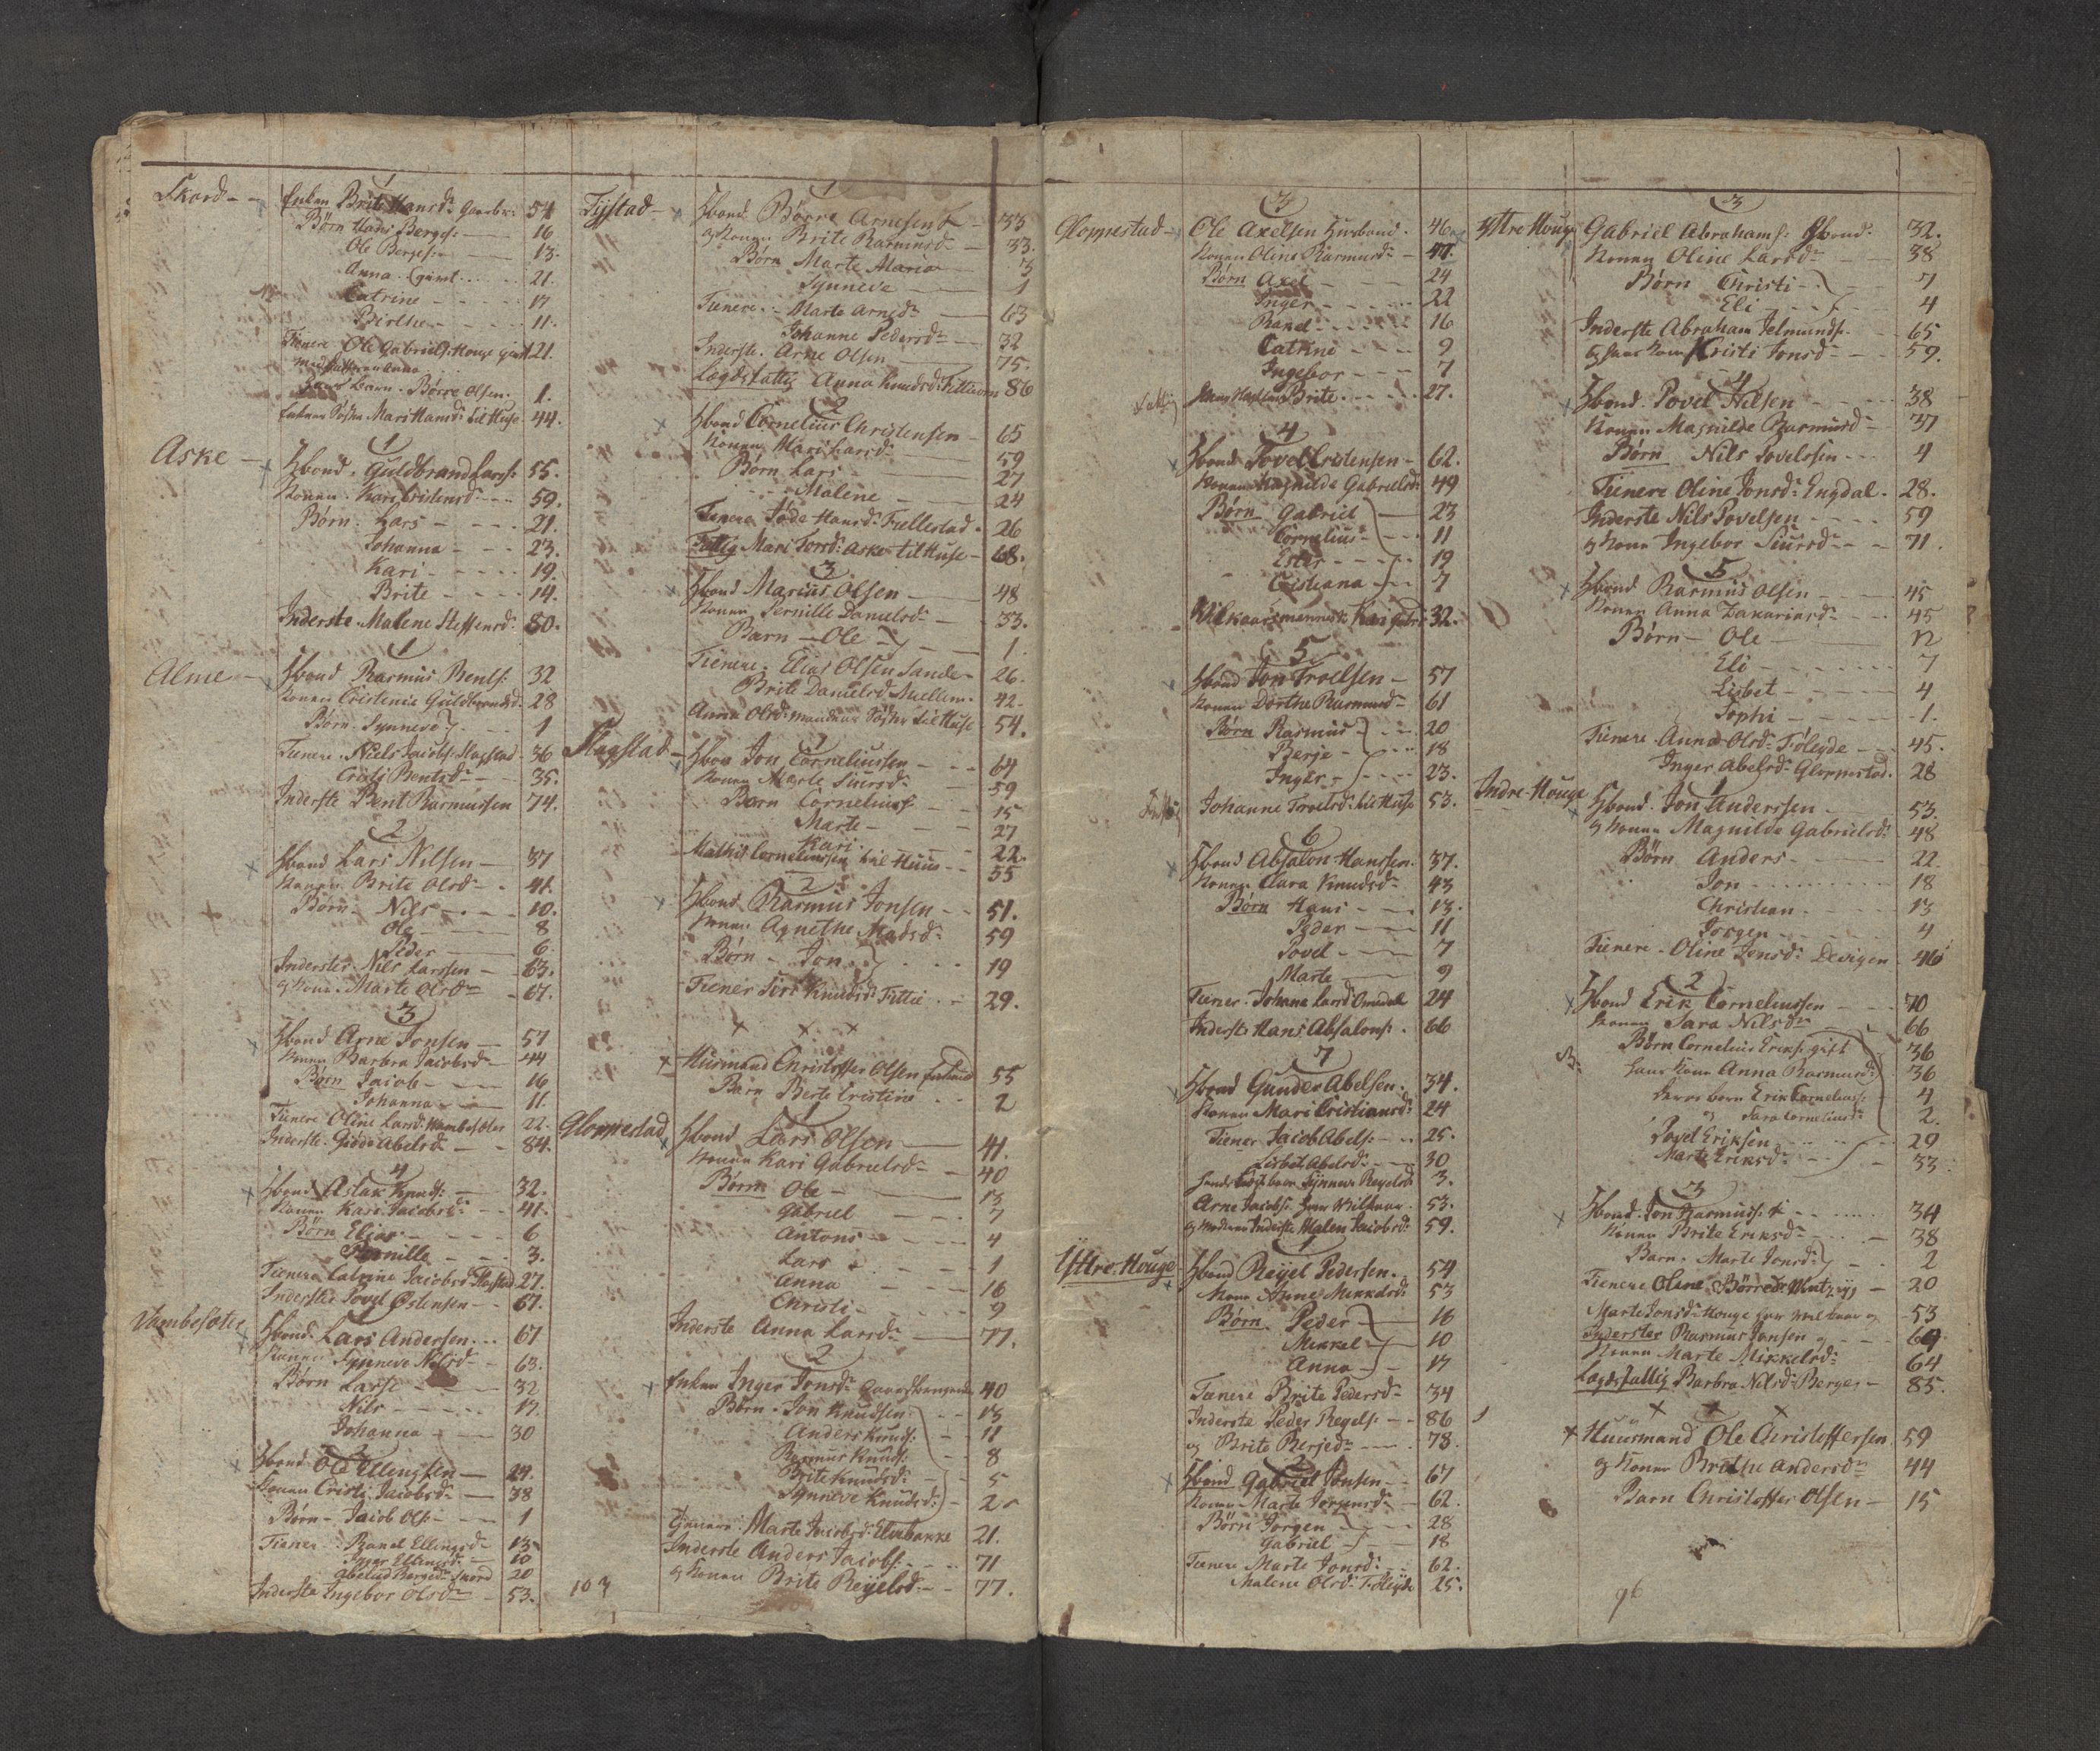 Skord
1
Enken Brite Hansd: Gaardbr: 54
Børn Hans Berges: 16
Ole Berges: 13.
Anna 21.
Catrine 17
Birthe 11.
Tienere Ole Gabriels: Houge givt 21.
med Datteren Anna
Barn. Børre Olsen. 1.
Enkens Søster Mari Hansd: til Huse 44.
Aske
1
Hbond. Guldbrand Larss: 55.
Konen. Kari Cristensd: 59.
Børn. Lars 21.
Johanna 23.
Kari 19.
Brite 14.
Inderste Malene Steffensd: 80.
Alme
1
Hbond Rasmus Bents: 32
Konen Cristenie Guldbrandsd: 28
Børn. Synneve 1
Tienere. Niels Jacobs: Slagstad 36
Cristi Bentsd: 35.
Inderste Bent Rasmussen 74.
2
Hbond Lars Nilsen 37
Konen Brite Olsd: 41.
Børn Nils 10.
Ole 8
Peder 6.
Inderster Nils Larssen 63.
og Kone. Marte Olsd: 67.
3
Hbond Arne Jonsen 57
Konen Barbra Jacobsd: 44
Børn Jacob 16
Johanna 11.
Tienere Oline Larsd: Vambesæter 22.
Inderste. Giøde Abelsd: 84.
4
Hbond Aslak Knuds: 32.
Konen Kari Jacobsd: 41.
Børn Elias 6
Pernille 3.
Tienere Catrine Jacobsd: Slagstad 27.
Inderster Povel Østensen 67.
Vambesæter
1
Hbond. Lars Andersen 67
Konen Synneve Nilsd: 63.
Børn Lasse 32
Nils 17.
Johanna 30
2
Hbond. Ole Ellingsen 29.
Konen Cristi Jacobsd: 38
Børn Jacob Ols: 1
Tiener Ranel Ellingsd: 13
Inger Ellingsd: 10
Bergesd: Skord 20
Inderste Ingebor Olsd: 53.
Tystad
1
Hbond Børre Arnesen 33
og Konen Brite Rasmusd: 33.
Børn Marte Maria 3
Synneve 1
Tienere Marte Arnesd: 63
Johanne Pedersd: 32
Inderste. Arne Olsen 75.
Lægdsfattig Anna Knudsd: 86
2
Hbond Cornelius Christensen 65
Konen Mari Larsd: 59
Børn Lars 27
Malene 24
Tienere Giøde Hansd: Tiellestad 26
Fattig Mari Torsd: Aske til Huse 68.
3
Hbond Marius Olsen 48
Konen Pernille Danielsd: 33.
Barn Ole 1.
Tienere. Elias Olsen Sande 26.
Brite Danielsd: 42.
Anna Olsd: Mandens Søster til Huse 54.
Slagstad
1
Hbon Jon Corneliussen 64
Konen Marte Siursd: 59
Børn Cornelius 15
Marte 27
Kari 22.
Mathis Corneliussen til Huus 55
2
Hbond Rasmus Jonsen 51.
Konen Agnethe Madsd: 59
Børn Jon 19
Tiener Siri Knudsd: Tittie 29.
x x x
Husmand Christoffer Olsen Enkemand 55
Barn Berte Cristine 2
Gloppestad
1
Hbond Lars Olsen 41.
Konen Kari Gabrielsd: 40
Børn Ole 13
Gabriel 7
Antoni 4
Lars 1
Anna 16
Christi 9
Inderste Anna Larsd: 77.
2
Enken Inger Jonsd: Gaardbrugende 40
Børn. Jon Knudsen 13
Anders Knuds: 11
Rasmus Knuds: 8
Brite Knudsd: 5
Synneve Knudsd: 2
Tienere. Marte Jacobsd: Elvebakke 21.
Inderste Anders Jacobs: 71
og Konen Brite Reijelsd: 77.
103
Gloppestad
3
Ole Axelsen Husbond. 46
Konen Oline Rasmusd: 47.
Børn Axel 24
Inger 22
Ranel 16
Catrine 9
Ingebor 7
Brite 27.
4
Hbond Povel Cristensen 62.
Konen Magnilde Gabrielsd: 49
Børn Gabriel 23
Cornelius 11
Ester 19
Cistiana 7
Vilkaarsmenneske Kari Gabr: 32.
5
Hbond Jon Troelsen 57
Konen Dorthe Rasmusd: 61
Børn Rasmus 20
Berje 18
Inger 23.
Fattig Johanne Troelsd: til Huse 53.
6
Hbond Absalon Hanssen. 37.
Konen Clara Knudsd: 43
Børn Hans 13.
Peder 11
Povel 7
Marte 9
Tiener. Johana Larsd: Omdal 24
Inderste Hans Absalons: 66
7
Hbond Gunder Abelsen. 34.
Konen Mari Cristiansd: 24
Tiener Jacob Abels: 25.
Lisbet Abelsd: 30
Synneve Reyelsd: 3.
Arne Jacobs: har Vilkaar 53.
og Moderen Inderste Malen Jacobsd: 59.
Yttre Houge
1
Hbond Reijel Pedersen. 54
Kone Anne Mikkelsd: 53
Børn Peder 16
Mikkel 10
Anna 17
Tienere Brite Pedersd: 34
Inderste Peder Reyels: 86
og Brite Berjed: 78.
2
Hbond Gabriel Jonsen 67
Konen Marte Jorgensd: 62.
Børn Jorgen 28
Gabriel 18
Tienere Marte Jonsd: 62.
Malene Olsd: Føleyde 25.
Yttre Houge
3
Gabriel Abrahams: Hbond: 32.
Konen Oline Larsd: 38
Børn Christi 7
Eli 4
Inderste Abraham Jelmunds: 65
og hans Kone Kristi Jonsd: 59.
4
Hbond. Povel Nilsen 38
Konen Magnilde Rasmusd: 37
Børn Nils Povelsen 4
Tienere Oline Jonsd: Engdal. 28.
Inderste Nils Povelsen 59
og Kone Ingebor Siursd: 71.
5
Hbond Rasmus Olsen 45
Konen Anna Zakariasd: 45
Børn Ole 12
Eli 7
Lisbet 4
Sophi 1.
Tienere Anna Olsd: Føleyde 45.
Inger Abelsd: Gloppestad. 28
Indre Houge
1
Hbond. Jon Anderssen 53.
og Konen Magnilde Gabrielsd: 48
Børn Anders 22.
Jon 18
Christian 13
Jorgen 4
Tienere. Oline Jonsd: Devigen 46
2
Hbond Erik Corneliussen 70
Konen Sara Nilsd: 66
Børn Cornelius Eriks: gift 36
hans Kone Anna Rasmusd: 36
deres børn Erik Cornelius: 4
og Sara Corneliusd: 2.
Povel Eriksen 29
Marte Eriksd: 33
3
Hbond. Jon Rasmuss: 34
Konen Brite Eriksd: 38
Barn. Marte Jonsd: 2
Tienere Oline Børresd: 20
Marte Jonsd: Houge har Vilkaar og 53
Inderster Rasmus Jonsen og 69
Konen Marte Mikkelsd: 64
Lægdsfattig Barbra Nilsd: Berge 85.
x x x
Huusmand Ole Christoffersen 59
og Konen Brithe Andersd: 44
Barn Christoffer Olsen 15
96